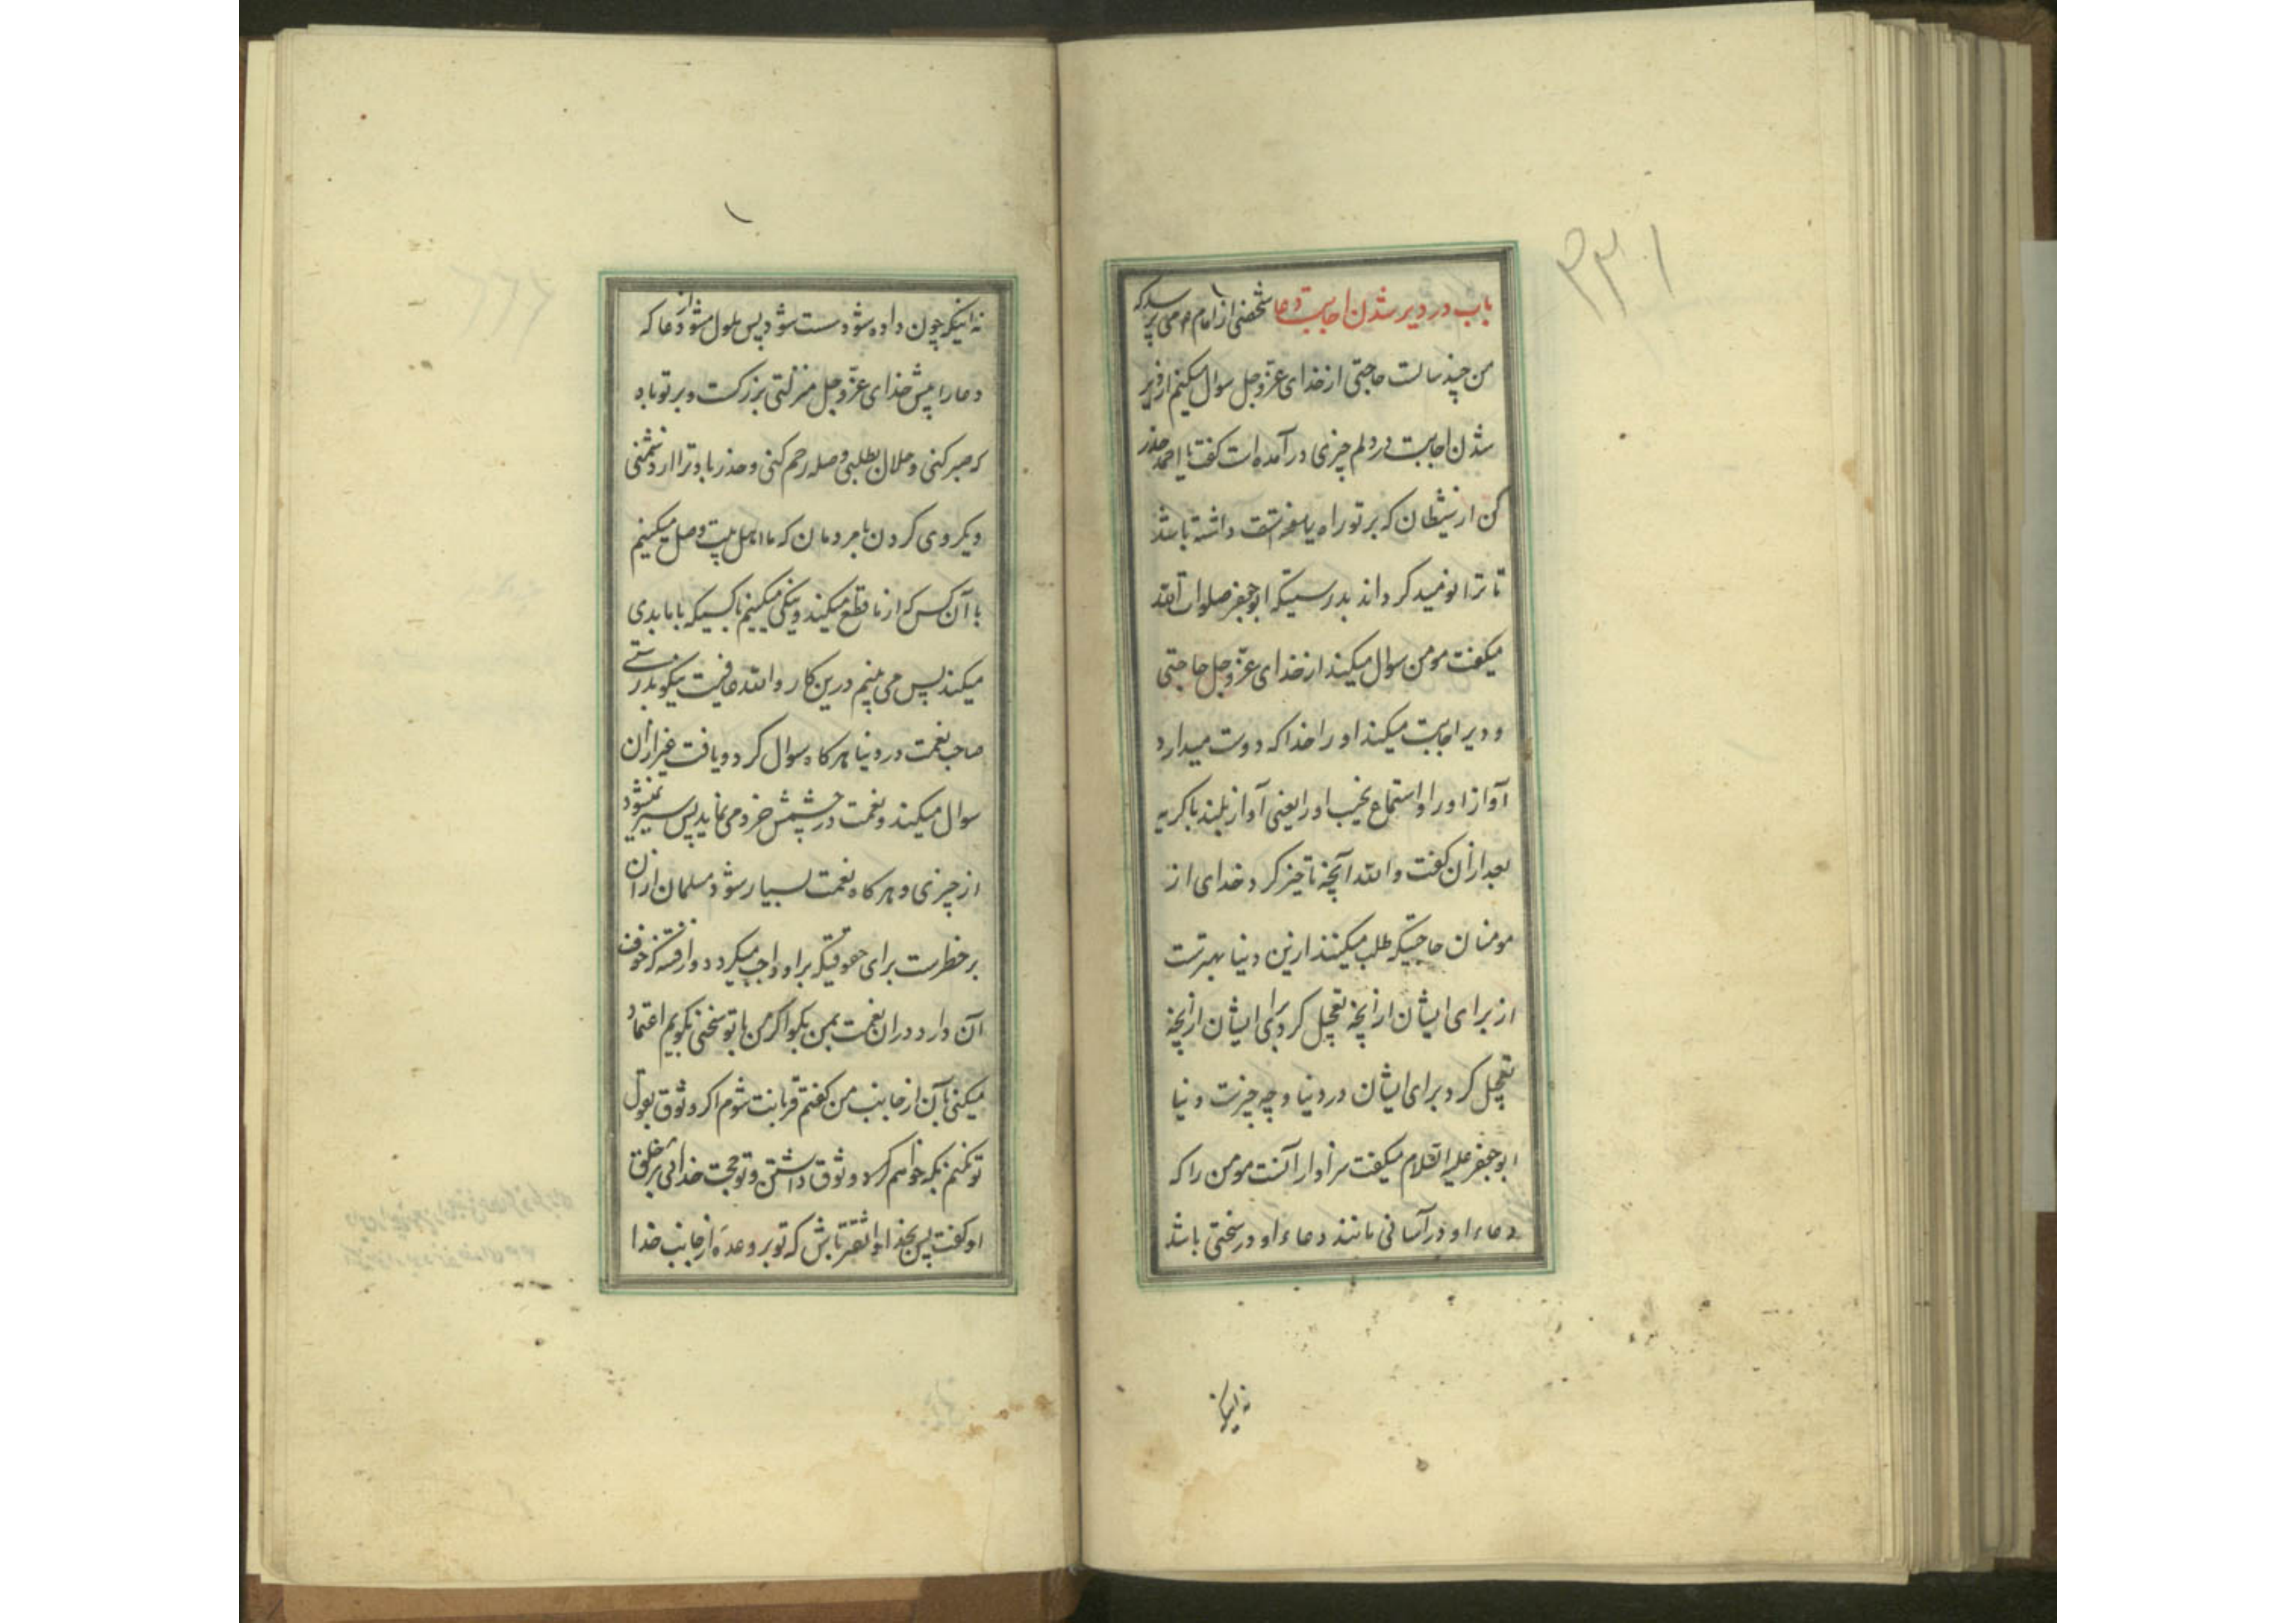 ۳۳۱
باب در دیر شدن اجابت دعا شخصی از امام می پرسد که
من چند سالست حاجتی از خدای عزّ و جل سوال میکنم از دیر
شدن اجابت در دلم چیزی در آمده است گفت یا احمد حذر
کن از شیطان که بر تو راه یافته داشته باشد
تا ترا نومید گرداند بدرستیکه ابو جعفر صلوات الله
میگفت مومن سوال میکند از خدای عزّ و جل حاجتی
و دیر اجابت میکند او را خدا که دوست میدارد
آواز او را و استماع نحیب او را یعنی آواز بلند با گریه
بعد ازان گفت والله آنچه تاخیر کرد خدای از
مومنان حاجتیکه طلب میکنند ازین دنیا بهترست
از برای ایشان از آنچه تعجیل کرد برای ایشان از آنچه
تعجیل کرد برای ایشان در دنیا و چه چیزست دنیا
ابو جعفر علیه السلام میگفت سزاوار آنست مومن را که
دعاء او در آسانی مانند دعاء او در سختی باشد
نه اینکه
۱
نه اینکه چون داده شود سست شود پس ملول مشو از دعا که
دعا را پیش خدای عزّ و جل منزلتی بزرگست و بر تو باد
که صبر کنی و حلال بطلبی و صله رحم کنی و حذر باد ترا از دشمنی
و یکروی کردن با مردمان که ما اهل بیت وصل میکنیم
با آن کس که از ما قطع میکند و نیکی میکنیم با کسیکه با ما بدی
میکند پس می بینیم درین کار والله عاقبت نیکو بدرستی
صاحب نعمت در دنیا هر گاه سوال کرد و یافت غیر ازان
سوال میکند و نعمت در چشمش خرد می نماید پس سیر نمیشود
از چیزی و هر گاه نعمت بسیار شود مسلمان ازان
بر خطرست برای حقوقیکه بر او واجب میگردد و از فتنه که خوف
آن دارد دران نعمت بمن بگو اگر من با تو سخنی بگویم اعتماد
میکنی بآن از جانب من گفتم قربانت شوم اگر وثوق بقول
تو نکنم بکه خواهم کرد وثوق داشتن و تو حجت خدائی بر خلق
او گفت پس بخدا واثق تر باش که تو بر وعده از جانب خدا